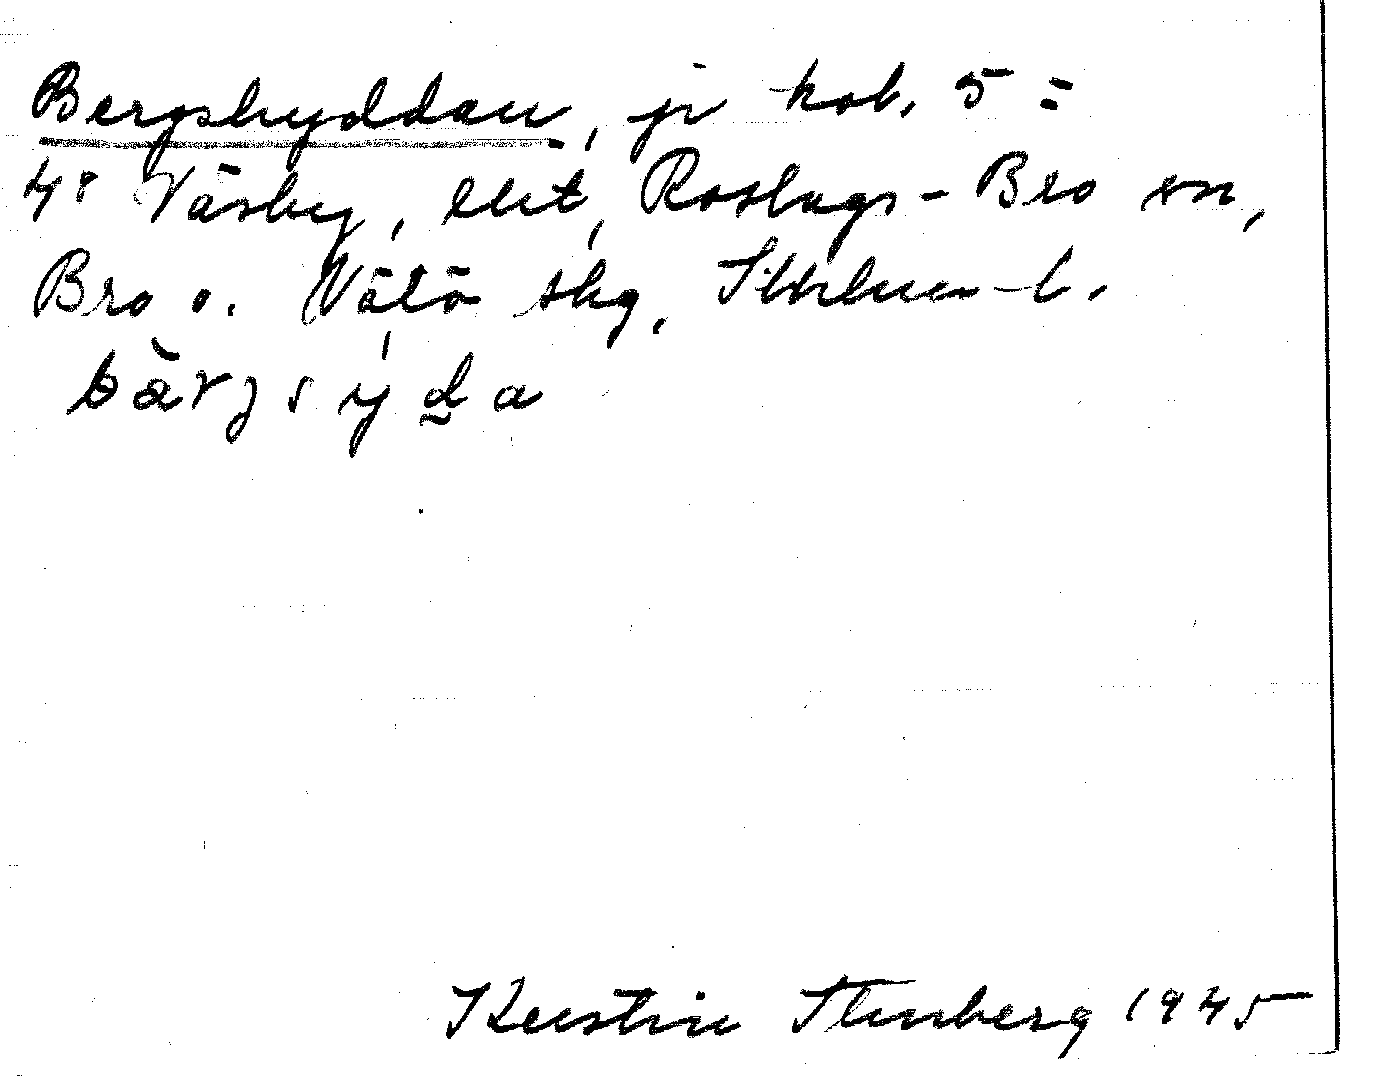 Bergshyddan, jr kob. 5 =
4⁸ Väsby, ekt, Roslags-Bro sn,
Bro o. Vätö skg, Sthlms l.
bä̀rjsyda
Kerstin Stenberg 1945